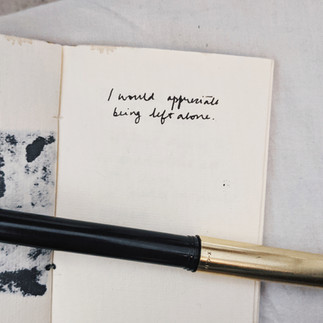 I would appreciate
being left alone.